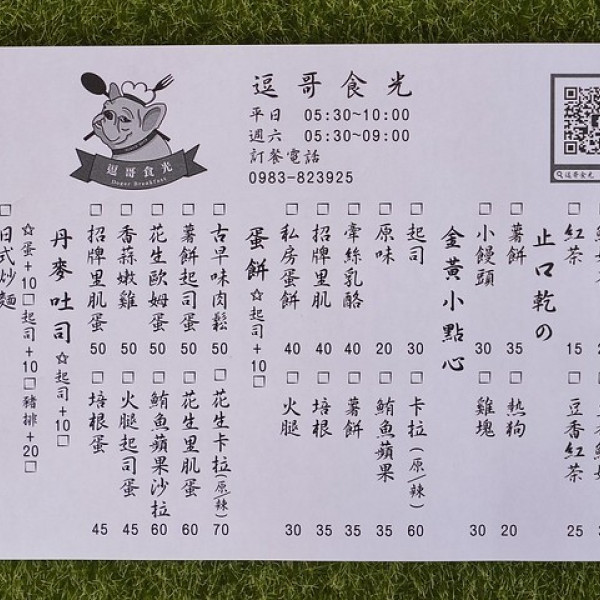 逗哥食光
平日 05:30~10:00
週六 05:30~09:00
訂餐電話
0983-823925
逗哥食光
Doger Breakfast
逗哥食光
□紅茶 15
□豆香紅茶 25
止口乾の
□薯餅 35
□熱狗 20
□小饅頭 30
□雞塊 30
金黃小點心
□起司 30
□卡拉(原/辣) 60
□原味 20
□鮪魚蘋果 35
□牽絲乳酪 40
□薯餅 35
□招牌里肌 40
□培根 35
□私房蛋餅 40
□火腿 30
蛋餅☆起司+10□
□古早味肉鬆 50
□花生卡拉(原/辣) 70
□薯餅起司蛋 50
□花生里肌蛋 60
□花生歐姆蛋 50
□鮪魚蘋果沙拉 60
□香蒜嫩雞 50
□火腿起司蛋 45
□招牌里肌蛋 50
□培根蛋 45
丹麥吐司☆起司+10□
☆蛋+10□起司+10□豬排+20□
□日式炒麵